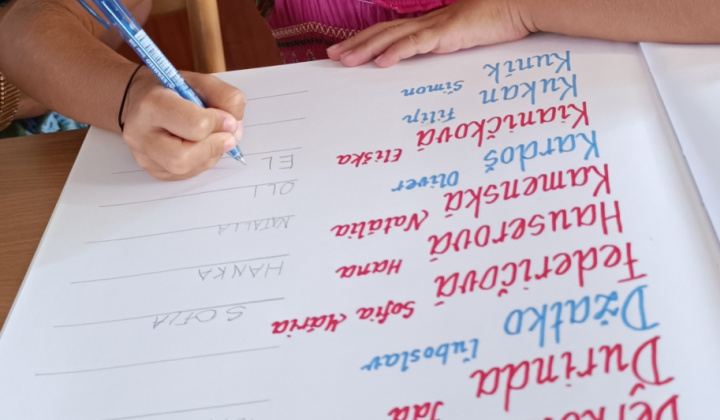 Durinda Ida
Džatko Ľuboslav
Federičová Sofia Mária SOFIA
Hauserová Hana HANKA
Kamenská Natália NATALIA
Kardoš Oliver OLI
Kianičková Eliška EL
Kukan Filip
Kuník Simon